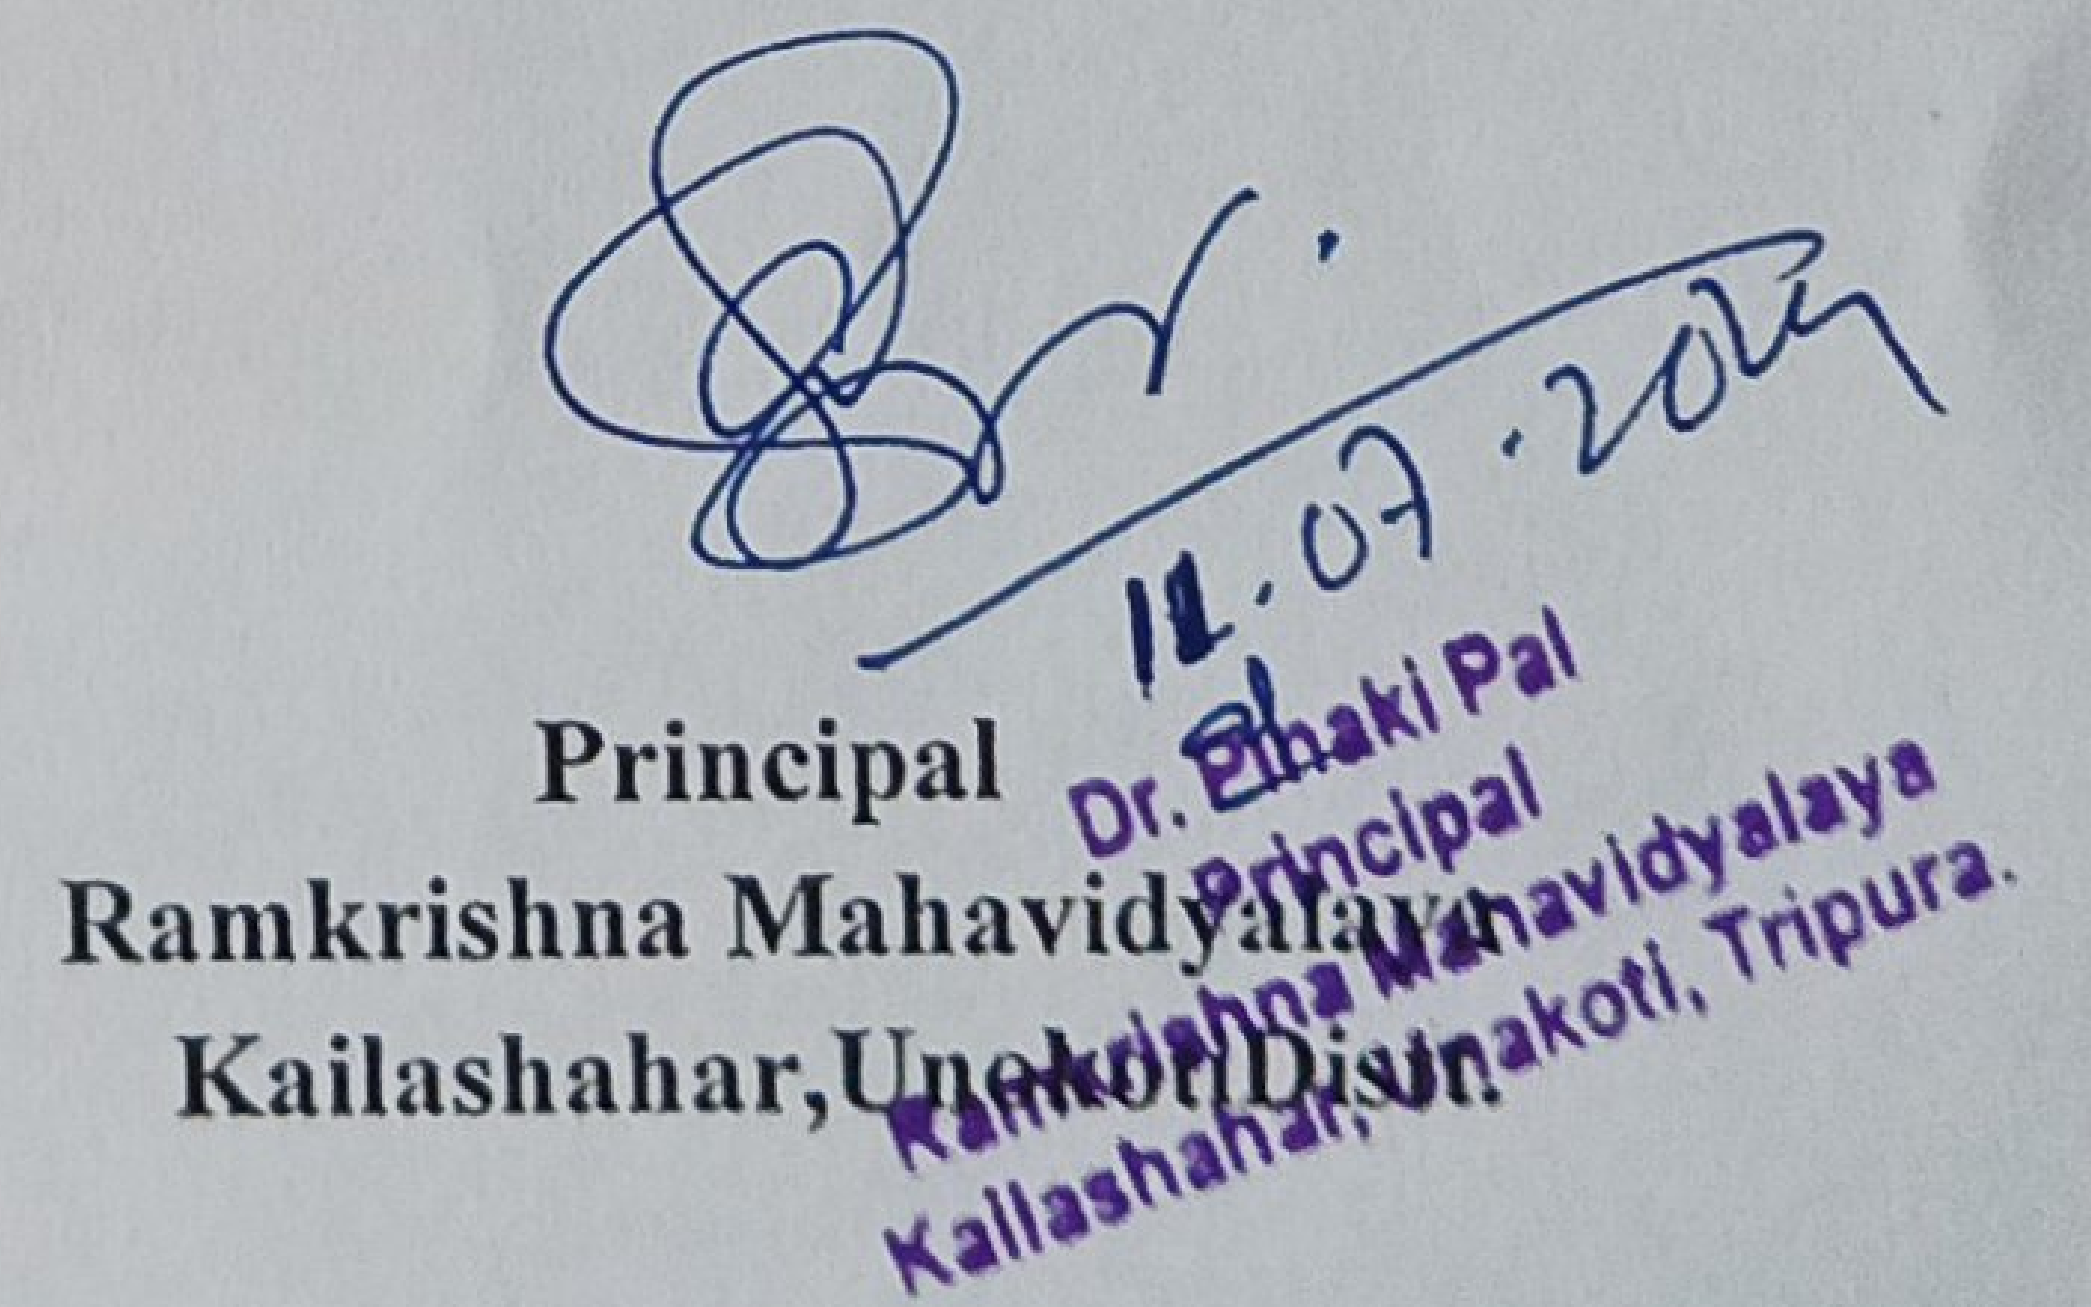 11.07.2024
Principal
Ramkrishna Mahavidyalaya
Kailashahar,Unokoti Distr.
Dr. Pinaki Pal
Principal
Ramkrishna Mahavidyalaya
Kailashahar, Unakoti, Tripura.